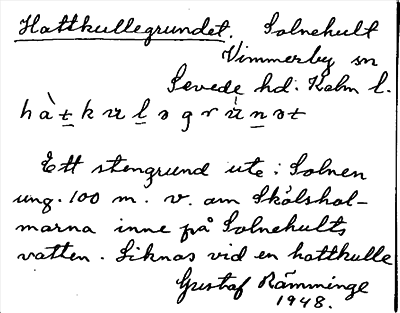 Hattkullegrundet. Solnehult
Vimmerby sn
Sevede hd. Kalm l.
hàt̠kɯl̠əgrɯ̀n̠ət
Ett stengrund ute i Solnen
ung. 100 m. v. om Skålshol-
marna inne på Solnehults
vatten. Liknas vid en hattkulle
Gustaf Rämminge
1948.